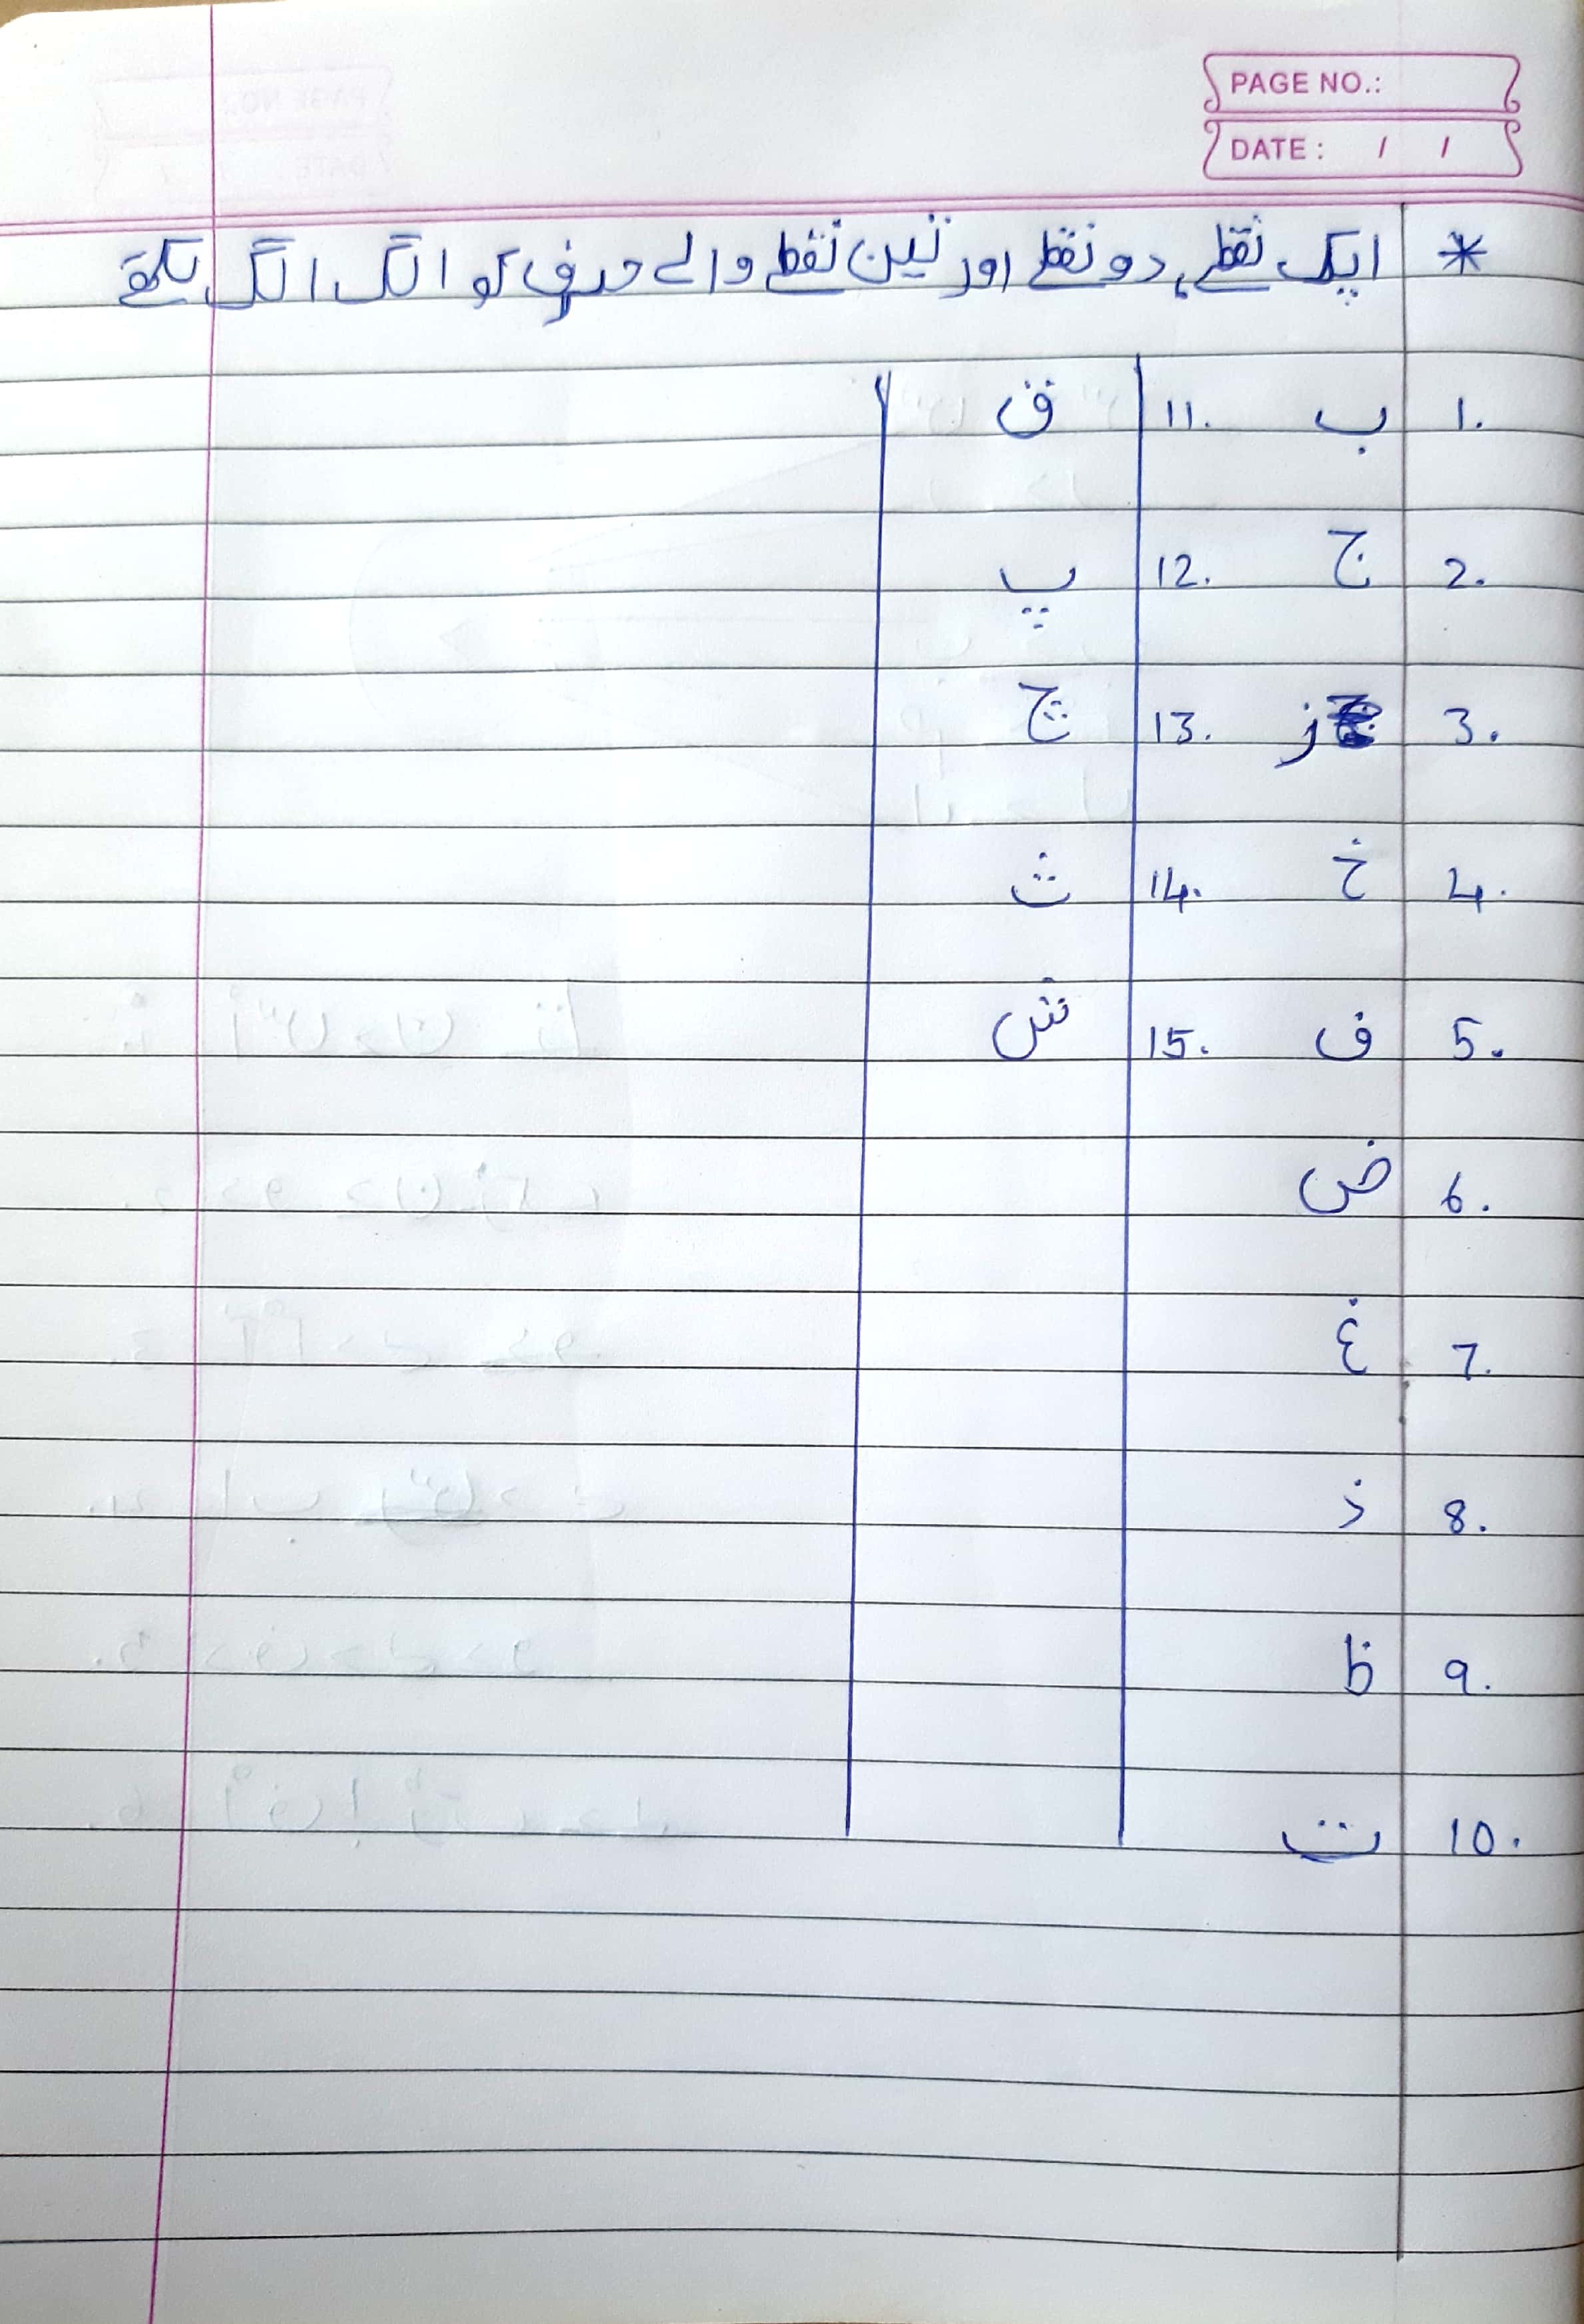 PAGE NO.:
DATE : / /
* ایک نقطے، دو نقطے اور تین نقطے والے حروف کو الگ الگ لکھے
1. ب 11. ق
2. ج 12. پ
3. ز 13. چ
4. خ 14. ث
5. ف 15. ش
6. ض
7. غ
8. ذ
9. ظ
10. ت